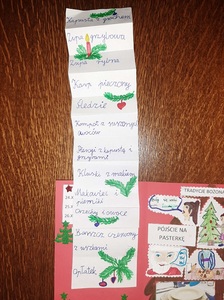 Kapusta z grochem
Zupa grzybowa
Zupa rybna
Karp pieczony
Śledzie
Kompot z suszonych
owoców
Pierogi z kapustą i
grzybami
Kluski z makiem
Makowiec i
pierniki
Orzechy i owoce
Barszcz czerwony
z uszkami
Opłatek
TRADYCJE BOŻONA
PÓJŚCIE NA
PASTERKĘ